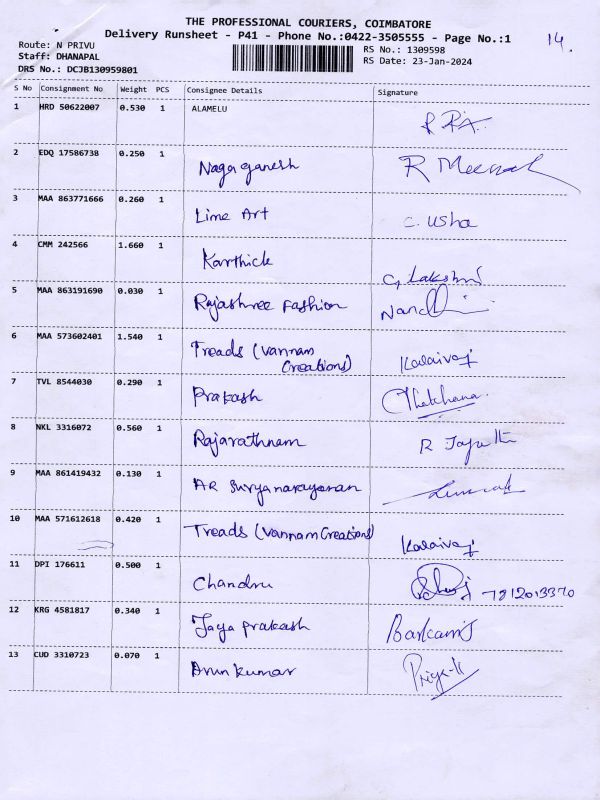 THE PROFESSIONAL COURIERS, COIMBATORE
Delivery Runsheet - P41 - Phone No.:0422-3505555 - Page No.:1
14.
Route: N PRIVU
RS No.: 1309598
Staff: DHANAPAL
RS Date: 23-Jan-2024
DRS No.: DCJB130959801
S No Consignment No Weight PCS Consignee Details Signature
1 HRD 50622007 0.530 1 ALAMELU
2 EDQ 17586738 0.250 1 Naga ganesh R Meenak
3 MAA 863771666 0.260 1 Lime Art C. Usha
4 CMM 242566 1.660 1 Karthick G, Lakshmi
5 MAA 863191690 0.030 1 Rajashree Fashion Nand
6 MAA 573602401 1.540 1 Treads (Vannam
Creations) Kalaivaj
7 TVL 8544030 0.290 1 Prakash Thatchana
8 NKL 3316072 0.560 1 Rajarathnam R
9 MAA 861419432 0.130 1 AR Suryanarayanan
10 MAA 571612618 0.420 1 Treads (Vannam Creations) Kalaivaj
11 DPI 176611 0.500 1 Chandru 7812013370
12 KRG 4581817 0.340 1 Jaya prakash
13 CUD 3310723 0.070 1 Arun kumar Priya-K